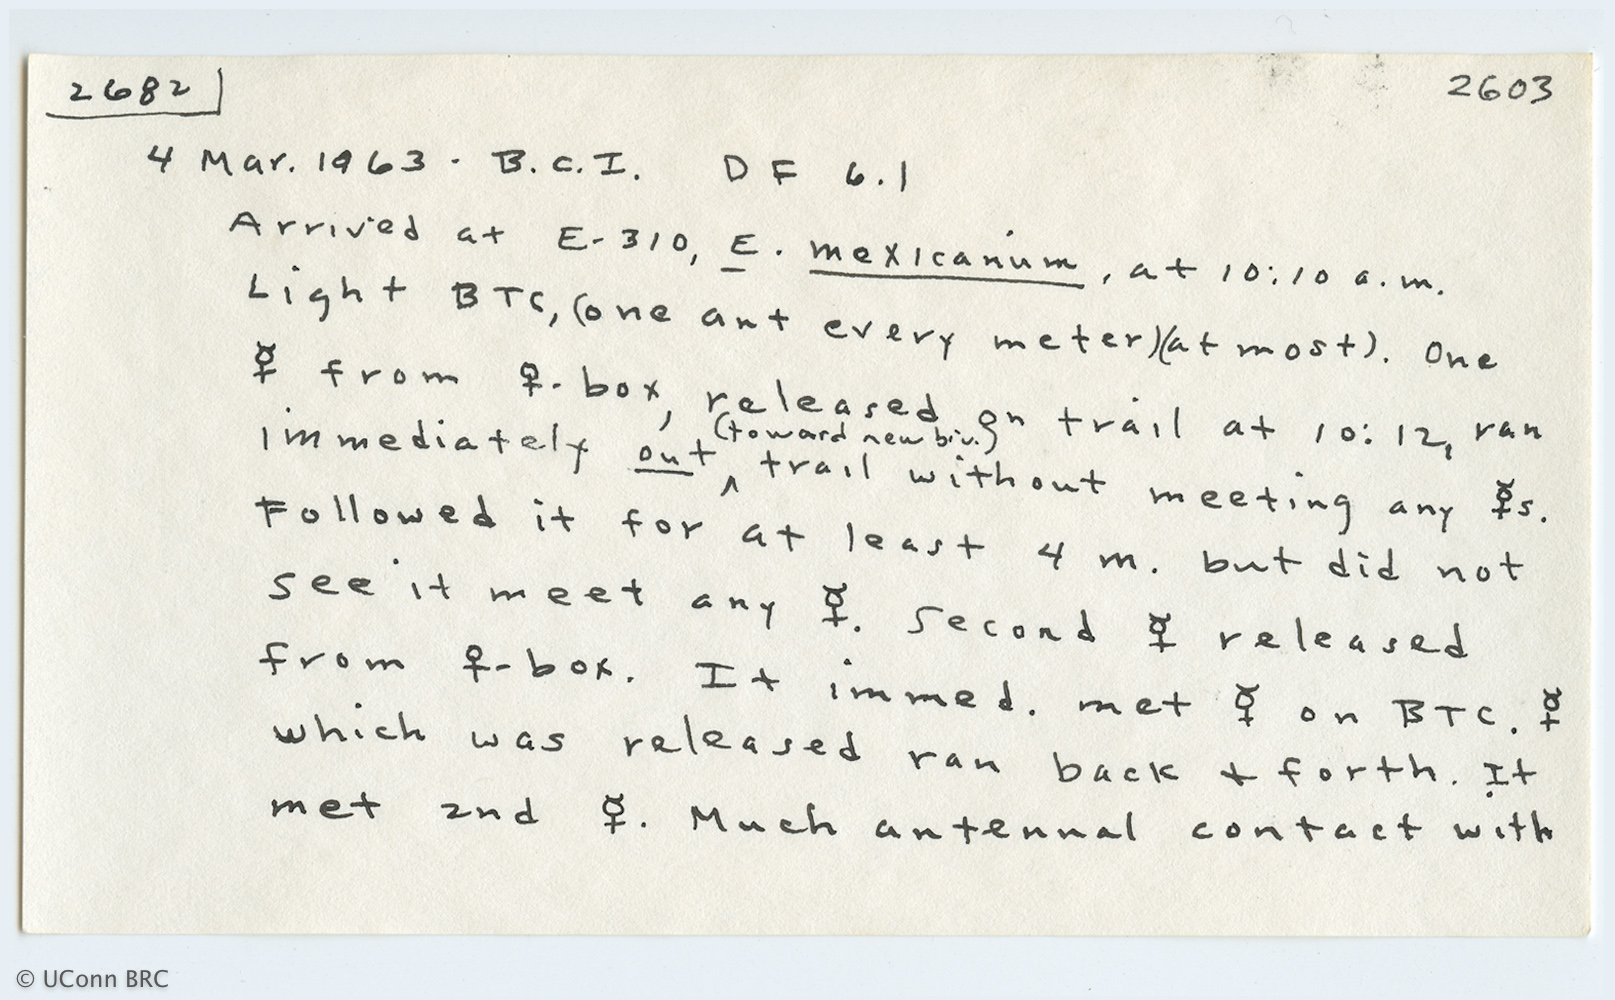 2682
2603
4 Mar. 1963. B.C.I. DF 6.1
Arrived at E-310, E. mexicanum, at 10:10 a.m.
Light BTC, (one ant every meter)(at most). One
☿ from ♀-box, released on trail at 10:12, ran
(toward new biv.)
immediately out ^ trail without meeting any ☿s.
Followed it for at least 4 m. but did not
see it meet any ☿. Second ☿ released
from ♀-box. It immed. met ☿ on BTC. ☿
which was released ran back + forth. It
met 2nd ☿. Much antennal contact with
© UConn BRC